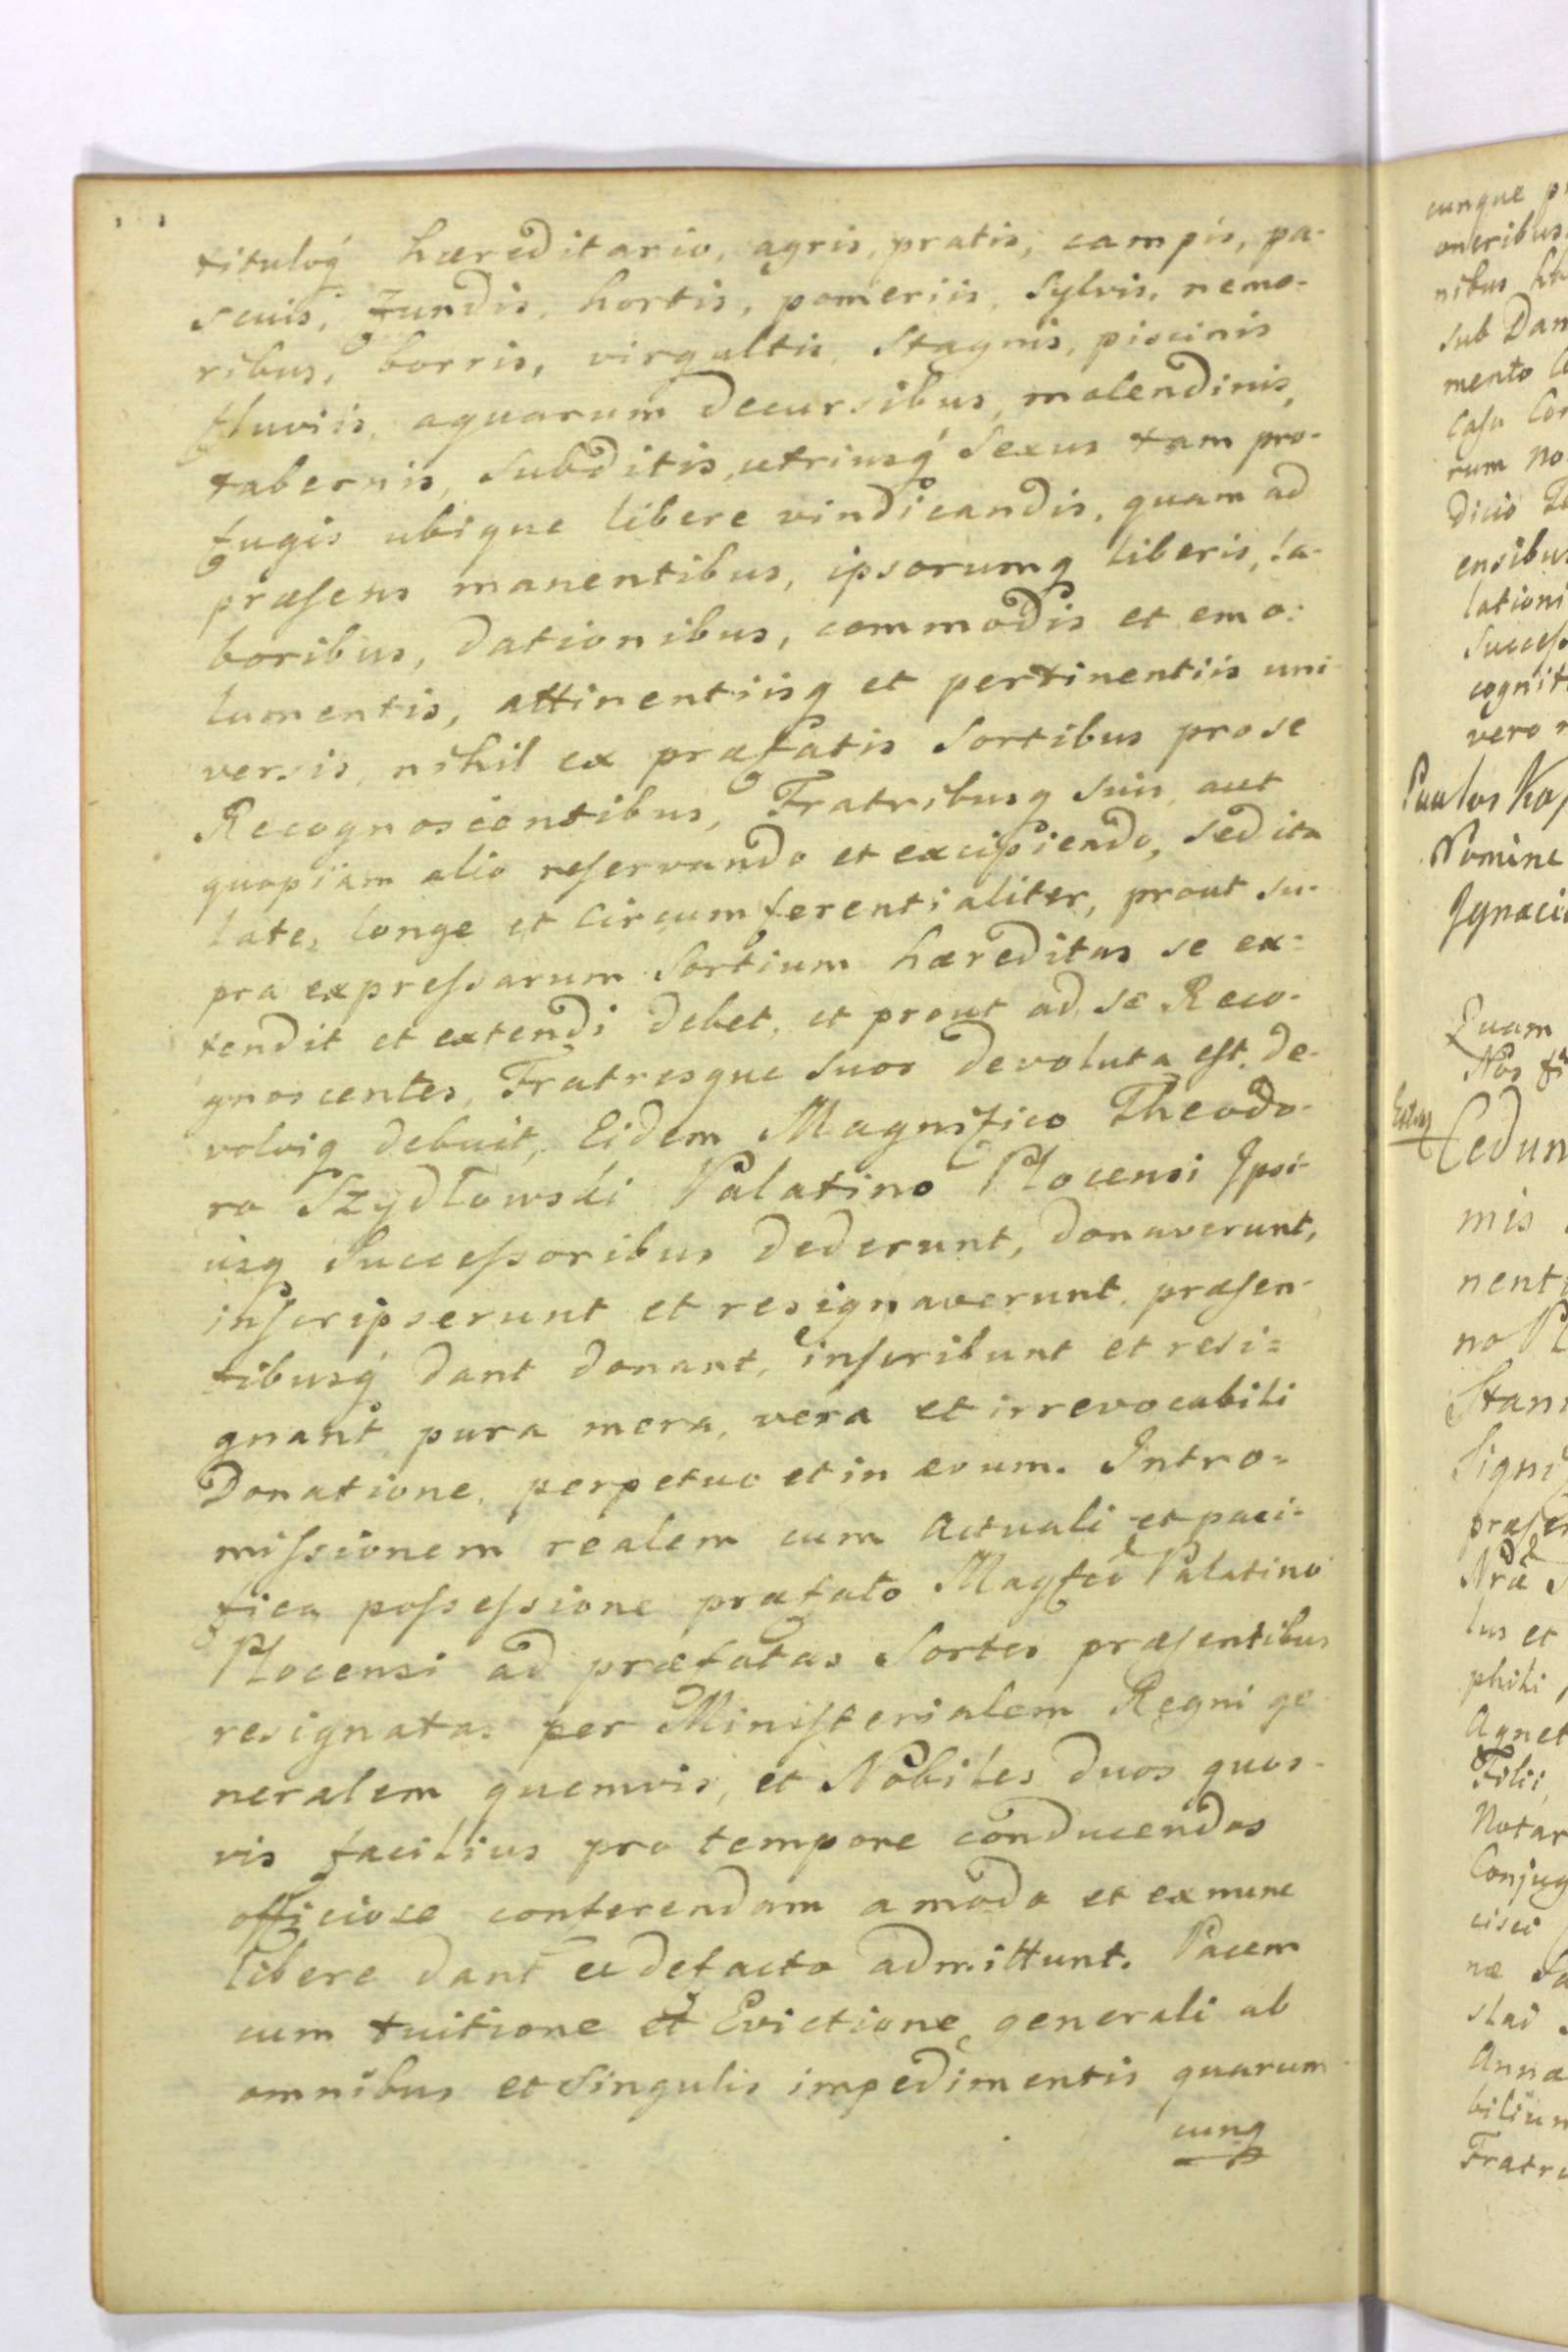 tituloq́ hæreditario, agris, pratis, campis, pa-
scuis, fundis, hortis, pomeriis, Sylvis, nemo-
ribus, borris, virgultis, Stagnis, piscinis
fluviis, aquarum decursibus, molendinis,
tabernis, Subditis, utriusq́ Sexus tam pro-
fugis ubique libere vindicandis, quam ad
præsens manentibus, ipsorumq liberis, la-
boribus, dationibus, commodis et emo:
lumentis, attinentiisq et pertinentiis uni
versis, nihil ex præfatis Sortibus pro se
Recognoscentibus, Fratribusq Suis, aut
quopiam alio reservando et excipiendo, Sed ita
late, longe et Circumferentialiter, prout Su-
pra expressarum Sortium hæreditas se ex=
tendit et extendi debet, et prout ad se Reco-
gnoscentes, Fratresque Suos devoluta est, de-
volviq debuit, Eidem Magnifico Theodo-
ro Szydłowski Palatino Plocensi Ipsi-
usq Successoribus dederunt, donaverunt,
inscripserunt et resignaverunt, præsen-
tibusq́ dant donant, inscribunt et resi=
gnant pura mera, vera et irrevocabili
Donatione, perpetuo et in ævum. Intro=
missionem realem cum Actuali et paci-
fica possessione præfato Magfco Palatino
Plocensi ad præfatas Sortes præsentibus
resignatas per Ministerialem Regni ge
neralem quemvis, et Nobiles duos quos-
vis facilius pro tempore conducendos
officiose conferendam a modo et ex nunc
libere dant et defacto admittunt. Pacem
cum tuitione et Evictione generali ab
omnibus et Singulis impedimentis quarum
cunq
cunque
oneribus
nibus
Sub Dam
mento
Casu Con
rum no
dicio
ensibus
lationi
Success
cognit
vero
Paulus Kop
Nomine
Ignaci
Quam
Nos
Cedun
mis
nent
no
Stani
Signi
præsen
lus et
phili
Agnet
Filii,
Notar
Conjug
cisci
næ
slai
Anna
bilium
Fratr